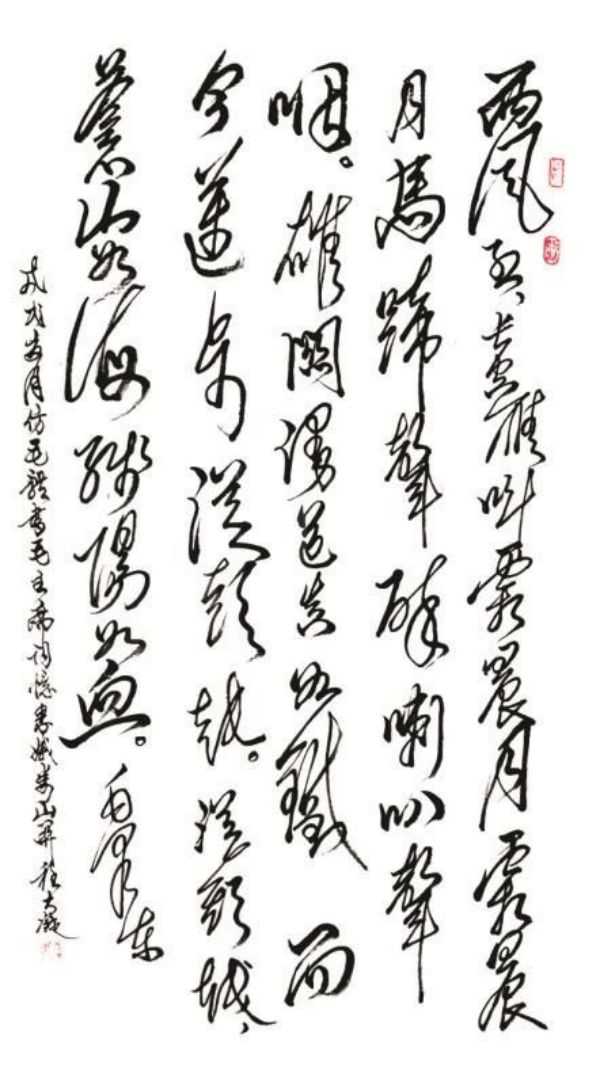 西风烈、长空雁叫霜晨月霜晨
月馬蹄聲碎喇叭聲
咽。雄關漫道真如鐵而
今邁步從頭越。從頭越、
蒼山如海殘陽如血。毛澤東
戊戌月仿毛體書毛主席词憶秦娥婁山關